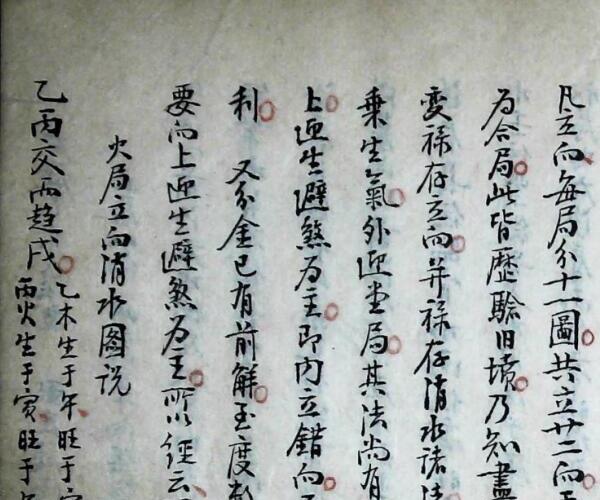 凡立向每局分十一圖共立廿二向
为合局此皆歷驗旧墳乃知盡
变祿存立向并祿存消水諸法
乗生氣外迎堂局其法尚有
上迎生避煞为主即内立錯向
利 又分金已有前解至度數
要向上迎生避煞为主所以経云
火局立向消水圖说
乙丙交而趋戌
乙木生于午旺于寅
丙火生于寅旺于午